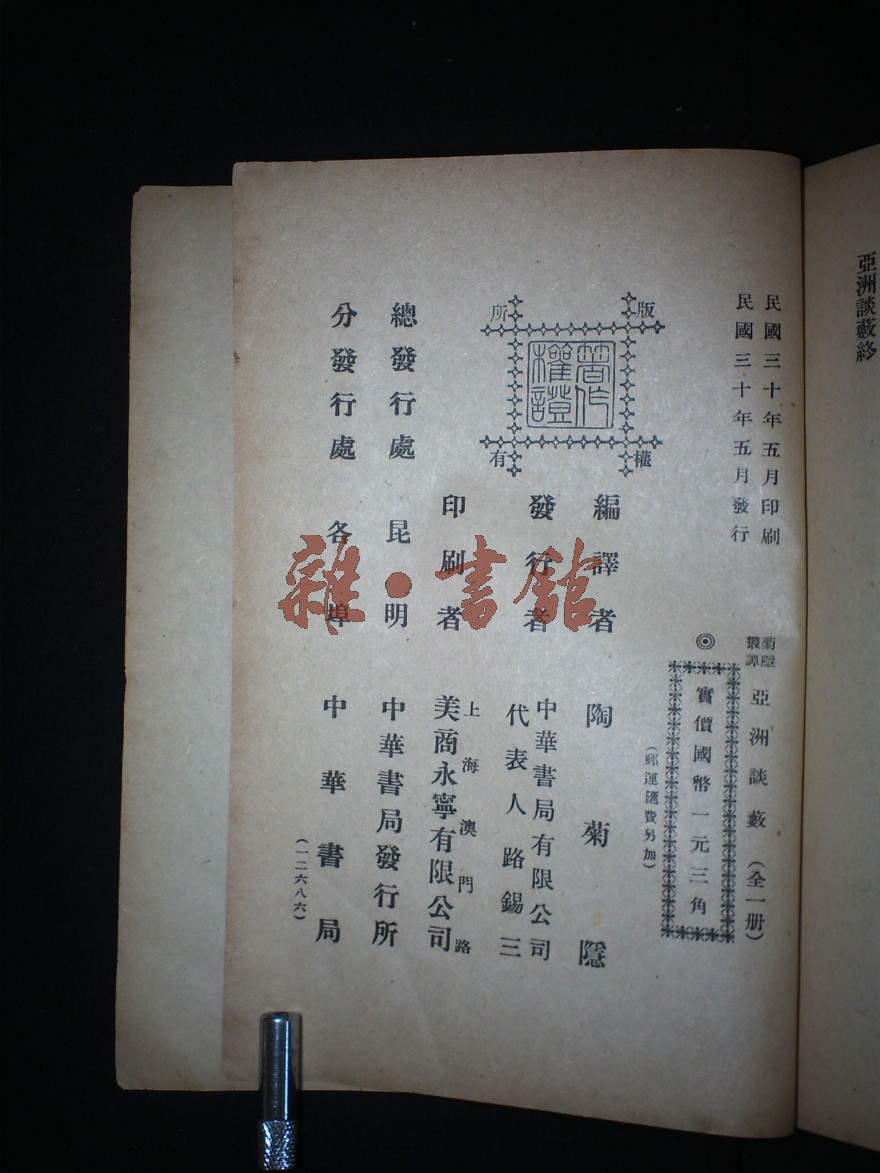 亞洲談藪終
民國三十年五月印刷
民國三十年五月發行
菊隱叢譚
亞洲談藪（全一册）
◎
實價國幣一元三角
（郵運匯費另加）
版權所有
著作權證
編譯者 陶菊隱
發行者 中華書局有限公司
代表人路錫三
印刷者 上海澳門路
美商永寧有限公司
總發行處 昆明 中華書局發行所
分發行處 各埠 中華書局
（一二六八六）
雜·書館